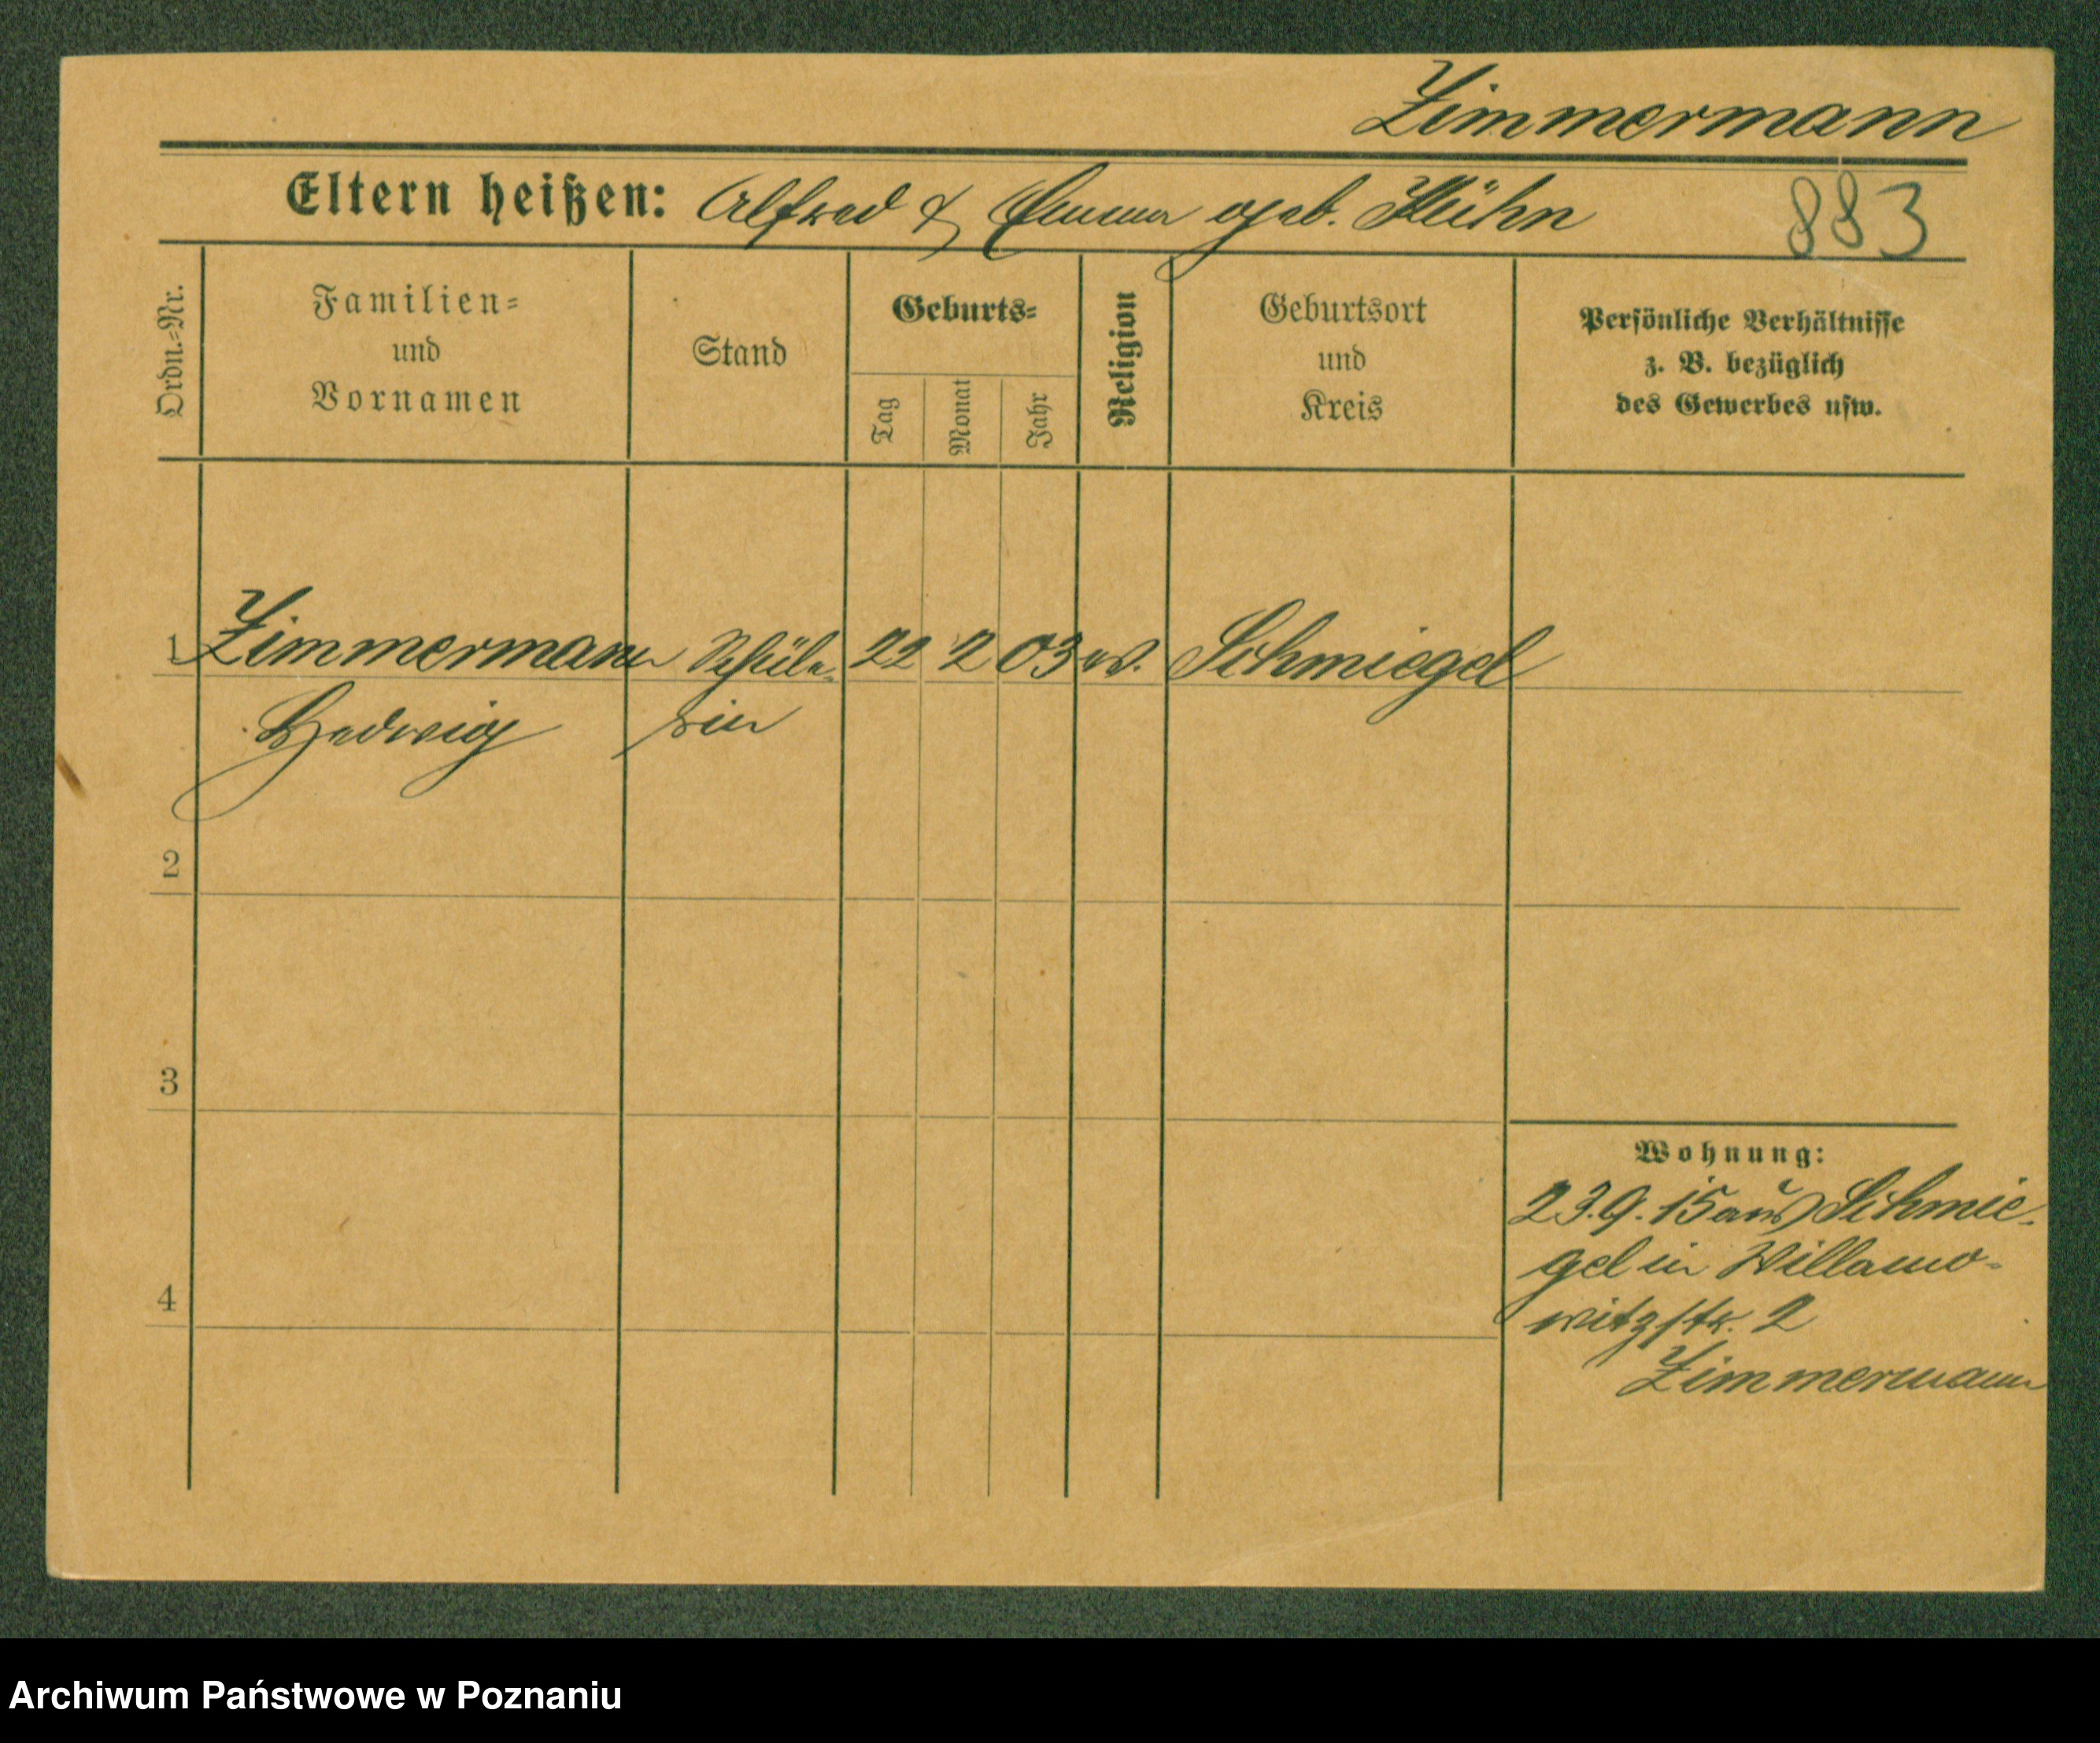 Zimmermann
Eltern heißen: Alfred & Emma geb. Kühn
883
Ordn.-Nr.
Familien-
und
Vornamen
Stand
Geburts-
Tag
Monat
Jahr
Religion
Geburtsort
und
Kreis
Persönliche Verhältnisse
z. B. bezüglich
des Gewerbes usw.
1 Zimmermann Schüle- 22 2 03 ev. Schmiegel
Hedwig rin
2
3
4
Wohnung:
23.9.15 aus Schmie-
gel in Willamo-
witzstr. 2
Zimmermann
Archiwum Państwowe w Poznaniu